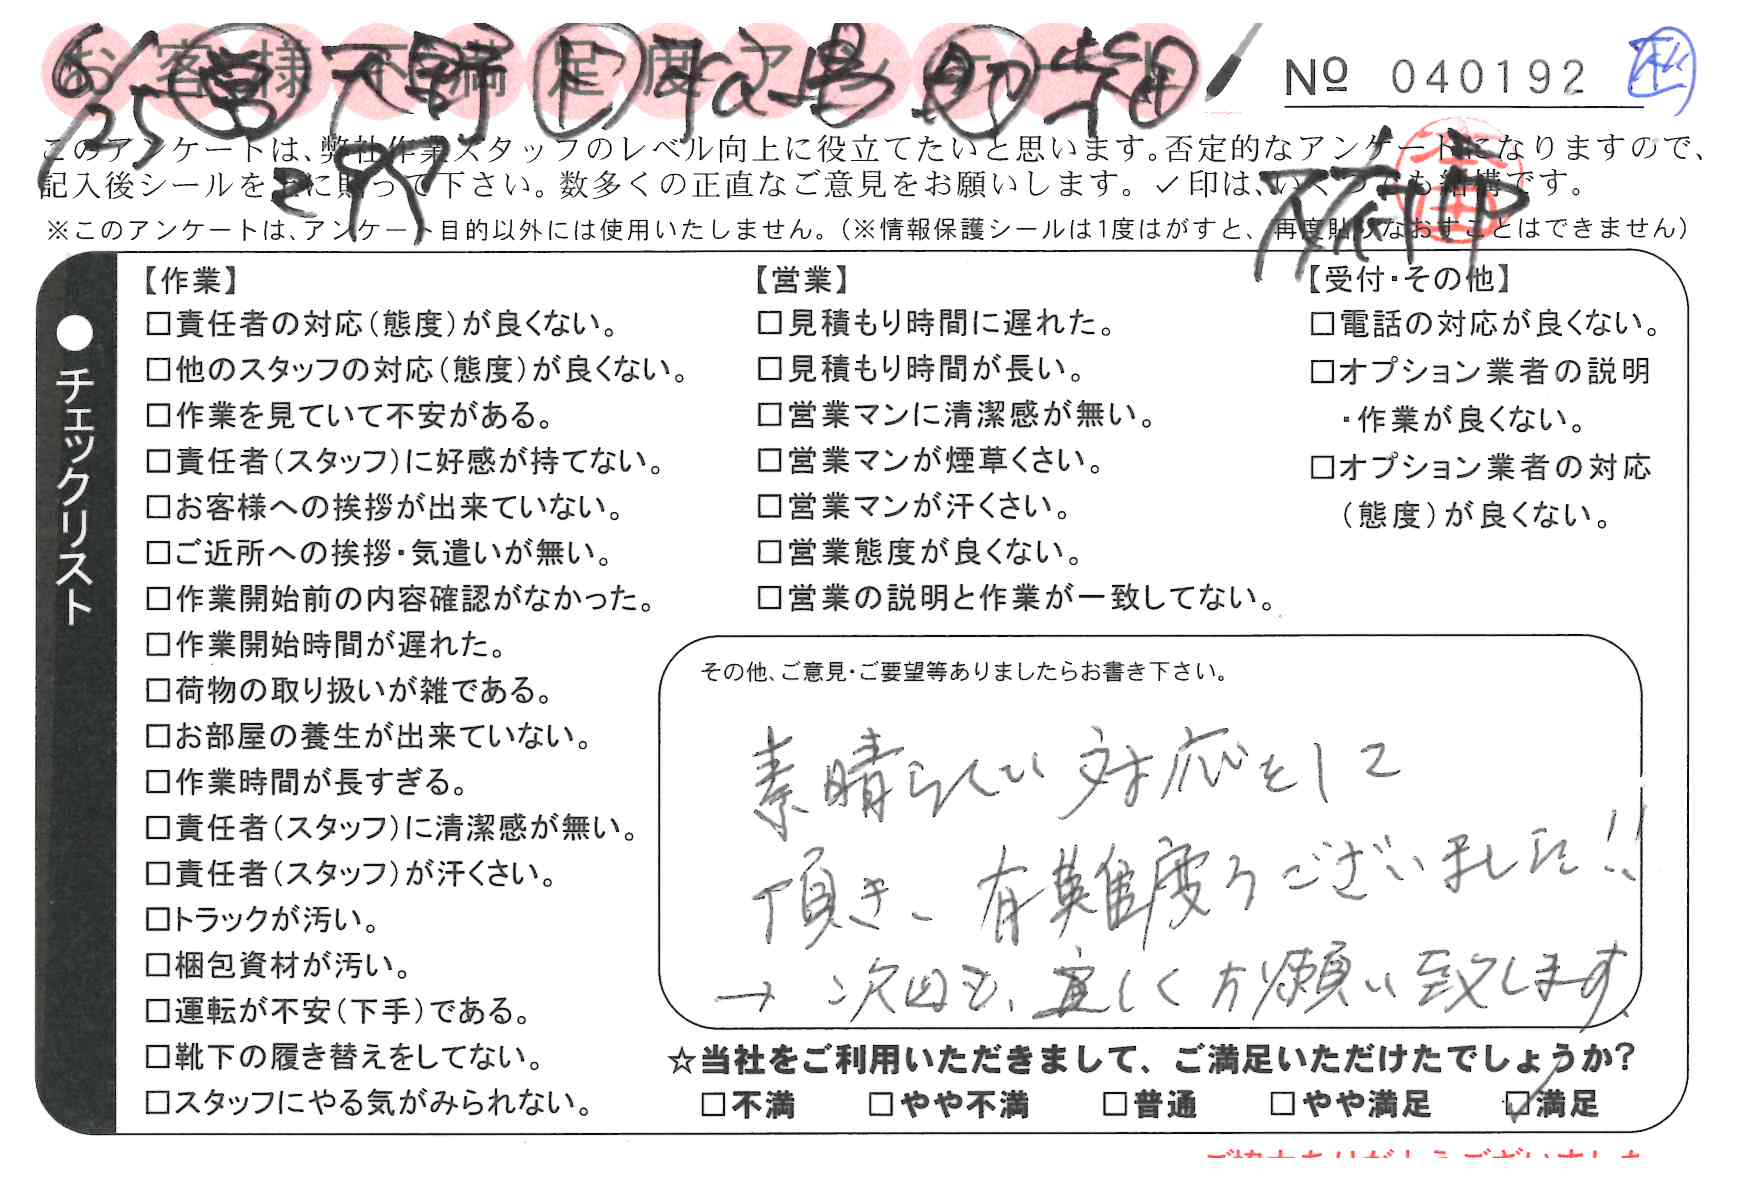 お客様不満足度アンケート
№ 040192
6/25 営 天野
このアンケートは、弊社作業スタッフのレベル向上に役立てたいと思います。否定的なアンケートになりますので、
記入後シールを上に貼って下さい。数多くの正直なご意見をお願いします。✓印は、いくつでも結構です。
※このアンケートは、アンケート目的以外には使用いたしません。(※情報保護シールは1度はがすと、再度貼りなおすことはできません)
●チェックリスト
【作業】
□責任者の対応(態度)が良くない。
□他のスタッフの対応(態度)が良くない。
□作業を見ていて不安がある。
□責任者(スタッフ)に好感が持てない。
□お客様への挨拶が出来ていない。
□ご近所への挨拶・気遣いが無い。
□作業開始前の内容確認がなかった。
□作業開始時間が遅れた。
□荷物の取り扱いが雑である。
□お部屋の養生が出来ていない。
□作業時間が長すぎる。
□責任者(スタッフ)に清潔感が無い。
□責任者(スタッフ)が汗くさい。
□トラックが汚い。
□梱包資材が汚い。
□運転が不安(下手)である。
□靴下の履き替えをしてない。
□スタッフにやる気がみられない。
【営業】
□見積もり時間に遅れた。
□見積もり時間が長い。
□営業マンに清潔感が無い。
□営業マンが煙草くさい。
□営業マンが汗くさい。
□営業態度が良くない。
□営業の説明と作業が一致してない。
【受付・その他】
□電話の対応が良くない。
□オプション業者の説明
・作業が良くない。
□オプション業者の対応
(態度)が良くない。
その他、ご意見・ご要望等ありましたらお書き下さい。
素晴らしい対応をして
頂き、有難度うございました!!
→次回も、宜しくお願い致します
☆当社をご利用いただきまして、ご満足いただけたでしょうか?
□不満 □やや不満 □普通 □やや満足 ☑満足
ご協力ありがとうございました